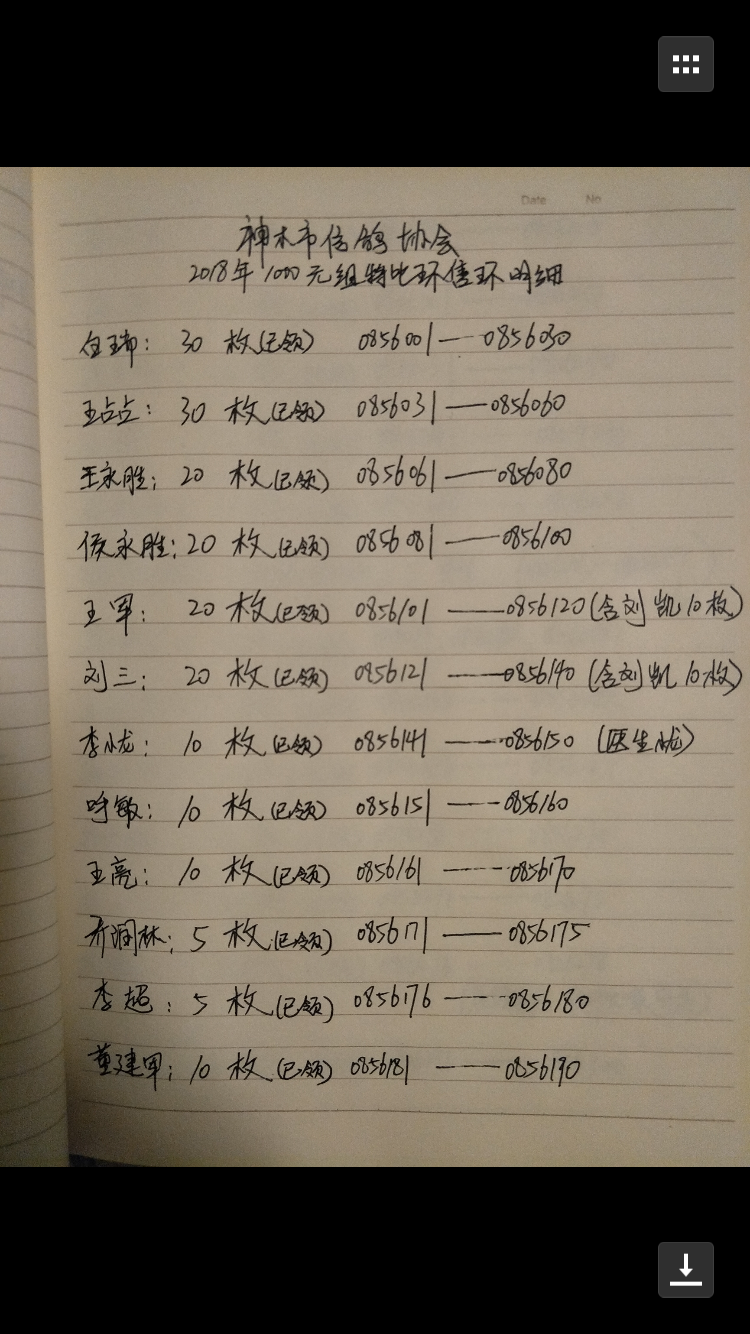 Date No
神木市信鸽协会
2018年1000元组特比环售环明细
30 枚(已领) 0856001——0856030
王占占: 30 枚(已领) 0856031——0856060
王永胜: 20 枚(已领) 0856061——0856080
侯永胜: 20 枚(已领) 0856081——0856100
王军: 20 枚(已领) 0856101——0856120(含刘凯10枚)
刘三: 20 枚(已领) 0856121——0856140(含刘凯10枚)
李小龙: 10 枚(已领) 0856141——0856150 (医生龙)
呼敏: 10 枚(已领) 0856151——0856160
王亮: 10 枚(已领) 0856161——0856170
乔润林: 5 枚(已领) 0856171——0856175
李超: 5 枚(已领) 0856176——0856180
董建军: 10 枚(已领) 0856181——0856190